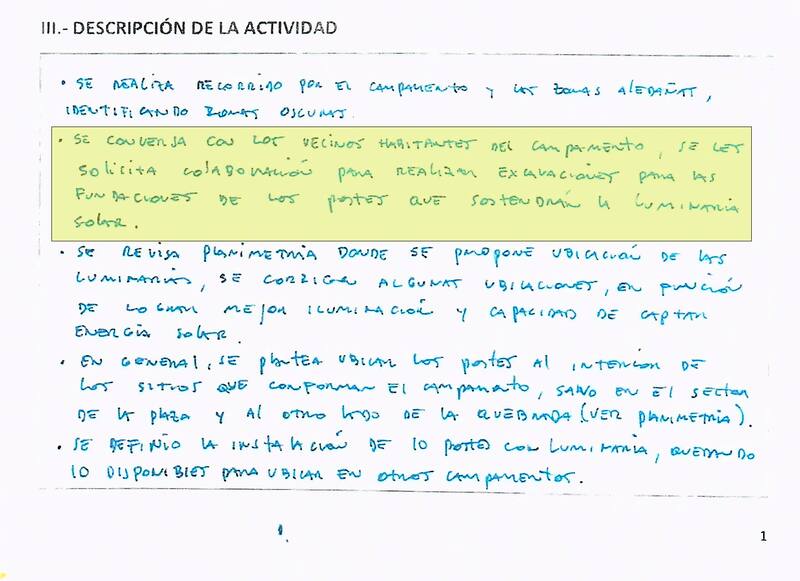 III.- DESCRIPCIÓN DE LA ACTIVIDAD
• SE REALIZA RECORRIDO POR EL CAMPAMENTO Y LAS ZONAS ALEDAÑAS,
IDENTIFICANDO ZONAS OSCURAS.
• SE CONVERSA CON LOS VECINOS HABITANTES DEL CAMPAMENTO, SE LES
SOLICITA COLABORACIÓN PARA REALIZAR EXCAVACIONES PARA LAS
FUNDACIONES DE LOS POSTES QUE SOSTENDRÁN LA LUMINARIA
SOLAR.
• SE REVISA PLANIMETRIA DONDE SE PROPONE UBICACIÓN DE LAS
LUMINARIAS, SE CORRIGEN ALGUNAS UBICACIONES, EN FUNCIÓN
DE LOGRAR MEJOR ILUMINACIÓN Y CAPACIDAD DE CAPTAR
ENERGÍA SOLAR.
• EN GENERAL, SE PLANTEA UBICAR LOS POSTES AL INTERIOR DE
LOS SITIOS QUE CONFORMAN EL CAMPAMENTO, SALVO EN EL SECTOR
DE LA PLAZA Y AL OTRO LADO DE LA QUEBRADA (VER PLANIMETRIA).
• SE DEFINIO LA INSTALACIÓN DE 10 POSTES CON LUMINARIA, QUEDANDO
10 DISPONIBLES PARA UBICAR EN OTROS CAMPAMENTOS.
1